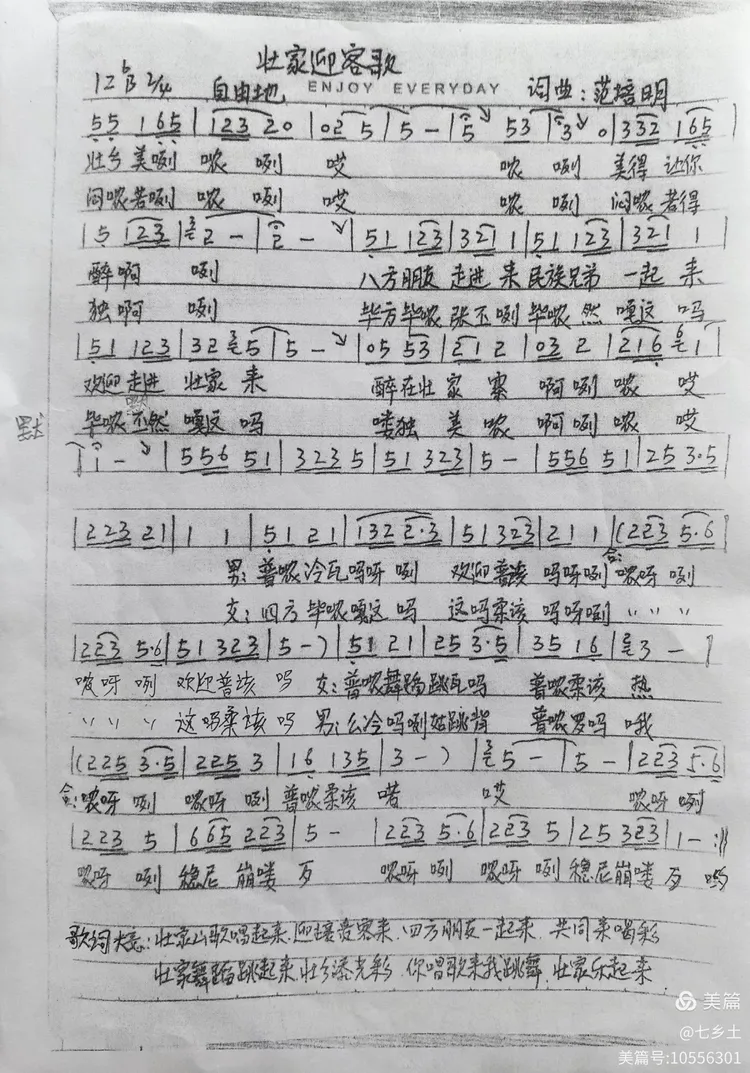 壮家迎客歌
ENJOY EVERYDAY
1=♭B 2/4 自由地 词曲：范培明
55 165 | 123 20 | 02 5 | 5 - | 5 53 | 3 0 | 332 165
壮乡美咧 哝 咧 哎 哝 咧 美得 让你
闷哝若咧 哝 咧 哎 哝 咧 闷哝 若得
| 5 123 | 2 - | 2 - | 51 123 | 321 1 | 51 123 | 321 1
醉啊 咧 八方朋友 走进 来 民族兄弟 一起 来
独啊 咧 毕方毕哝 张丕咧 毕哝 然 嘎这 吗
| 51 123 | 32 5 | 5 - | 05 53 | 21 2 | 03 2 | 216 1
欢迎 走进 壮家 来 醉在壮 家 寨 啊咧 哝 哎
毕哝 丕然 嘎这 吗 喽独 美 哝 啊咧 哝 哎
| 1 - | 556 51 | 323 5 | 51 323 | 5 - | 556 51 | 25 3·5
| 223 21 | 1 1 | 51 21 | 132 2·3 | 51 323 | 21 1 | (223 5·6
男：普哝冷瓦吗呀 咧 欢迎普该 吗呀咧 合：哝呀 咧
女：四方毕哝嘎这 吗 这吗柔该 吗呀咧 〃 〃 〃
| 223 5·6 | 51 323 | 5 - ) | 51 21 | 25 3·5 | 35 16 | 3 - |
哝呀 咧 欢迎普该 吗 女：普哝舞蹈跳瓦吗 普哝柔该 热
〃 〃 〃 这吗柔该 吗 男：么冷吗咧姑跳背 普哝罗吗 哦
| (225 3·5 | 225 3 | 16 135 | 3 - ) | 5 - | 5 - | 223 5·6 |
合：哝呀 咧 哝呀 咧 普哝柔该 若 哎 哝呀 咧
| 223 5 | 665 223 | 5 - | 223 5·6 | 223 5 | 25 323 | 1 - :||
哝呀 咧 稳尼 崩喽 歹 哝呀 咧 哝呀 咧 稳尼崩喽 歹 吗
歌词大意：壮家山歌唱起来，迎接贵客来，四方朋友一起来，共同来喝彩
壮家舞蹈跳起来，壮乡添光彩，你唱歌来我跳舞，壮家乐起来
美篇
@七乡土
美篇号:10556301